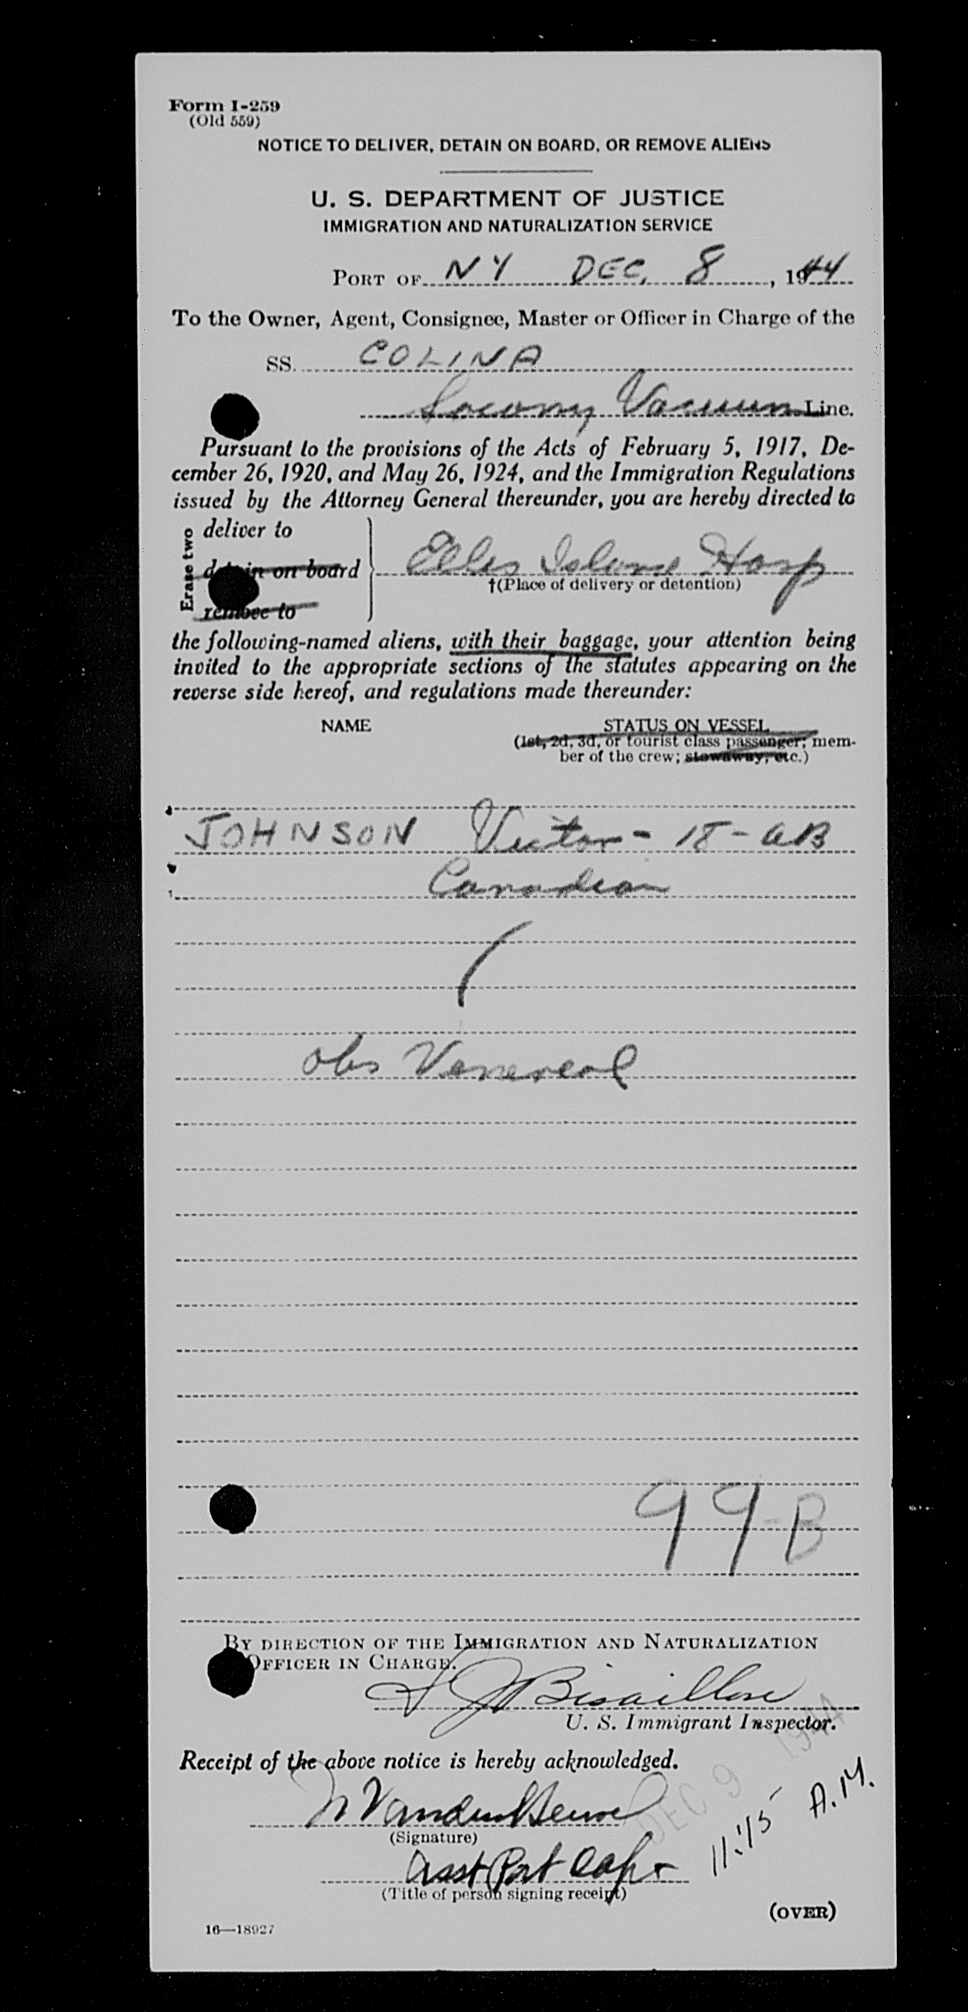 Form I-259
(Old 559)
NOTICE TO DELIVER, DETAIN ON BOARD, OR REMOVE ALIENS
U. S. DEPARTMENT OF JUSTICE
IMMIGRATION AND NATURALIZATION SERVICE
PORT OF NY DEC. 8, 1944
To the Owner, Agent, Consignee, Master or Officer in Charge of the
SS. COLINA
Socony Vacuum Line.
Pursuant to the provisions of the Acts of February 5, 1917, De-
cember 26, 1920, and May 26, 1924, and the Immigration Regulations
issued by the Attorney General thereunder, you are hereby directed to
Erase two
deliver to
detain on board
remove to
Ellis Island Hosp
†(Place of delivery or detention)
the following-named aliens, with their baggage, your attention being
invited to the appropriate sections of the statutes appearing on the
reverse side hereof, and regulations made thereunder:
NAME STATUS ON VESSEL
(1st, 2d, 3d, or tourist class passenger; mem-
ber of the crew; stowaway, etc.)
JOHNSON Victor - 18 - AB
Canadian
Obs Venereal
99-B
BY DIRECTION OF THE IMMIGRATION AND NATURALIZATION
OFFICER IN CHARGE.
Bisaillon
U. S. Immigrant Inspector.
Receipt of the above notice is hereby acknowledged.
DEC 9 1944
11:15 A.M.
(Signature)
Asst Port Capt
(Title of person signing receipt)
(OVER)
16—18927